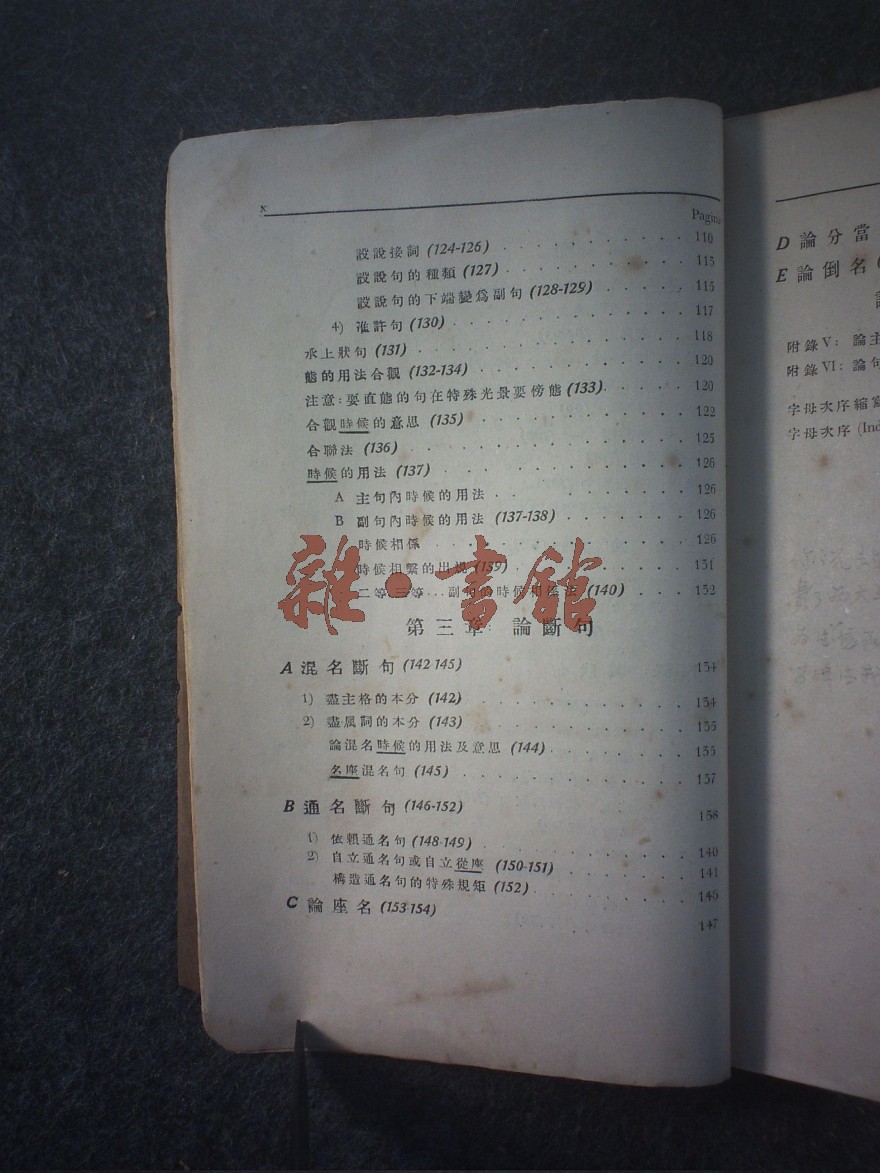 x
Pagina
設說接詞 (124-126) 110
設說句的種類 (127) 115
設說句的下端變爲副句 (128-129) 115
4) 准許句 (130) 117
承上狀句 (131) 118
態的用法合觀 (132-134) 120
注意:要直態的句在特殊光景要傍態 (133) 120
合觀時候的意思 (135) 122
合聯法 (136) 125
時候的用法 (137) 126
A 主句內時候的用法 126
B 副句內時候的用法 (137-138) 126
時候相係 126
時候相繫的出規 (139) 131
二等三等...副句的時候相 法 (140) 132
第三章 論斷句
A 混名斷句 (142-145) 134
1) 盡主格的本分 (142) 134
2) 盡属詞的本分 (143) 135
論混名時候的用法及意思 (144) 135
名座混名句 (145) 137
B 通名斷句 (146-152) 138
1) 依賴通名句 (148-149) 140
2) 自立通名句或自立從座 (150-151) 141
構造通名句的特殊規矩 (152) 146
C 論座名 (153-154) 147
雜·書館
D 論分當
E 論倒名
附錄 V: 論主
附錄 VI: 論句
字母次序縮寫
字母次序 (Ind